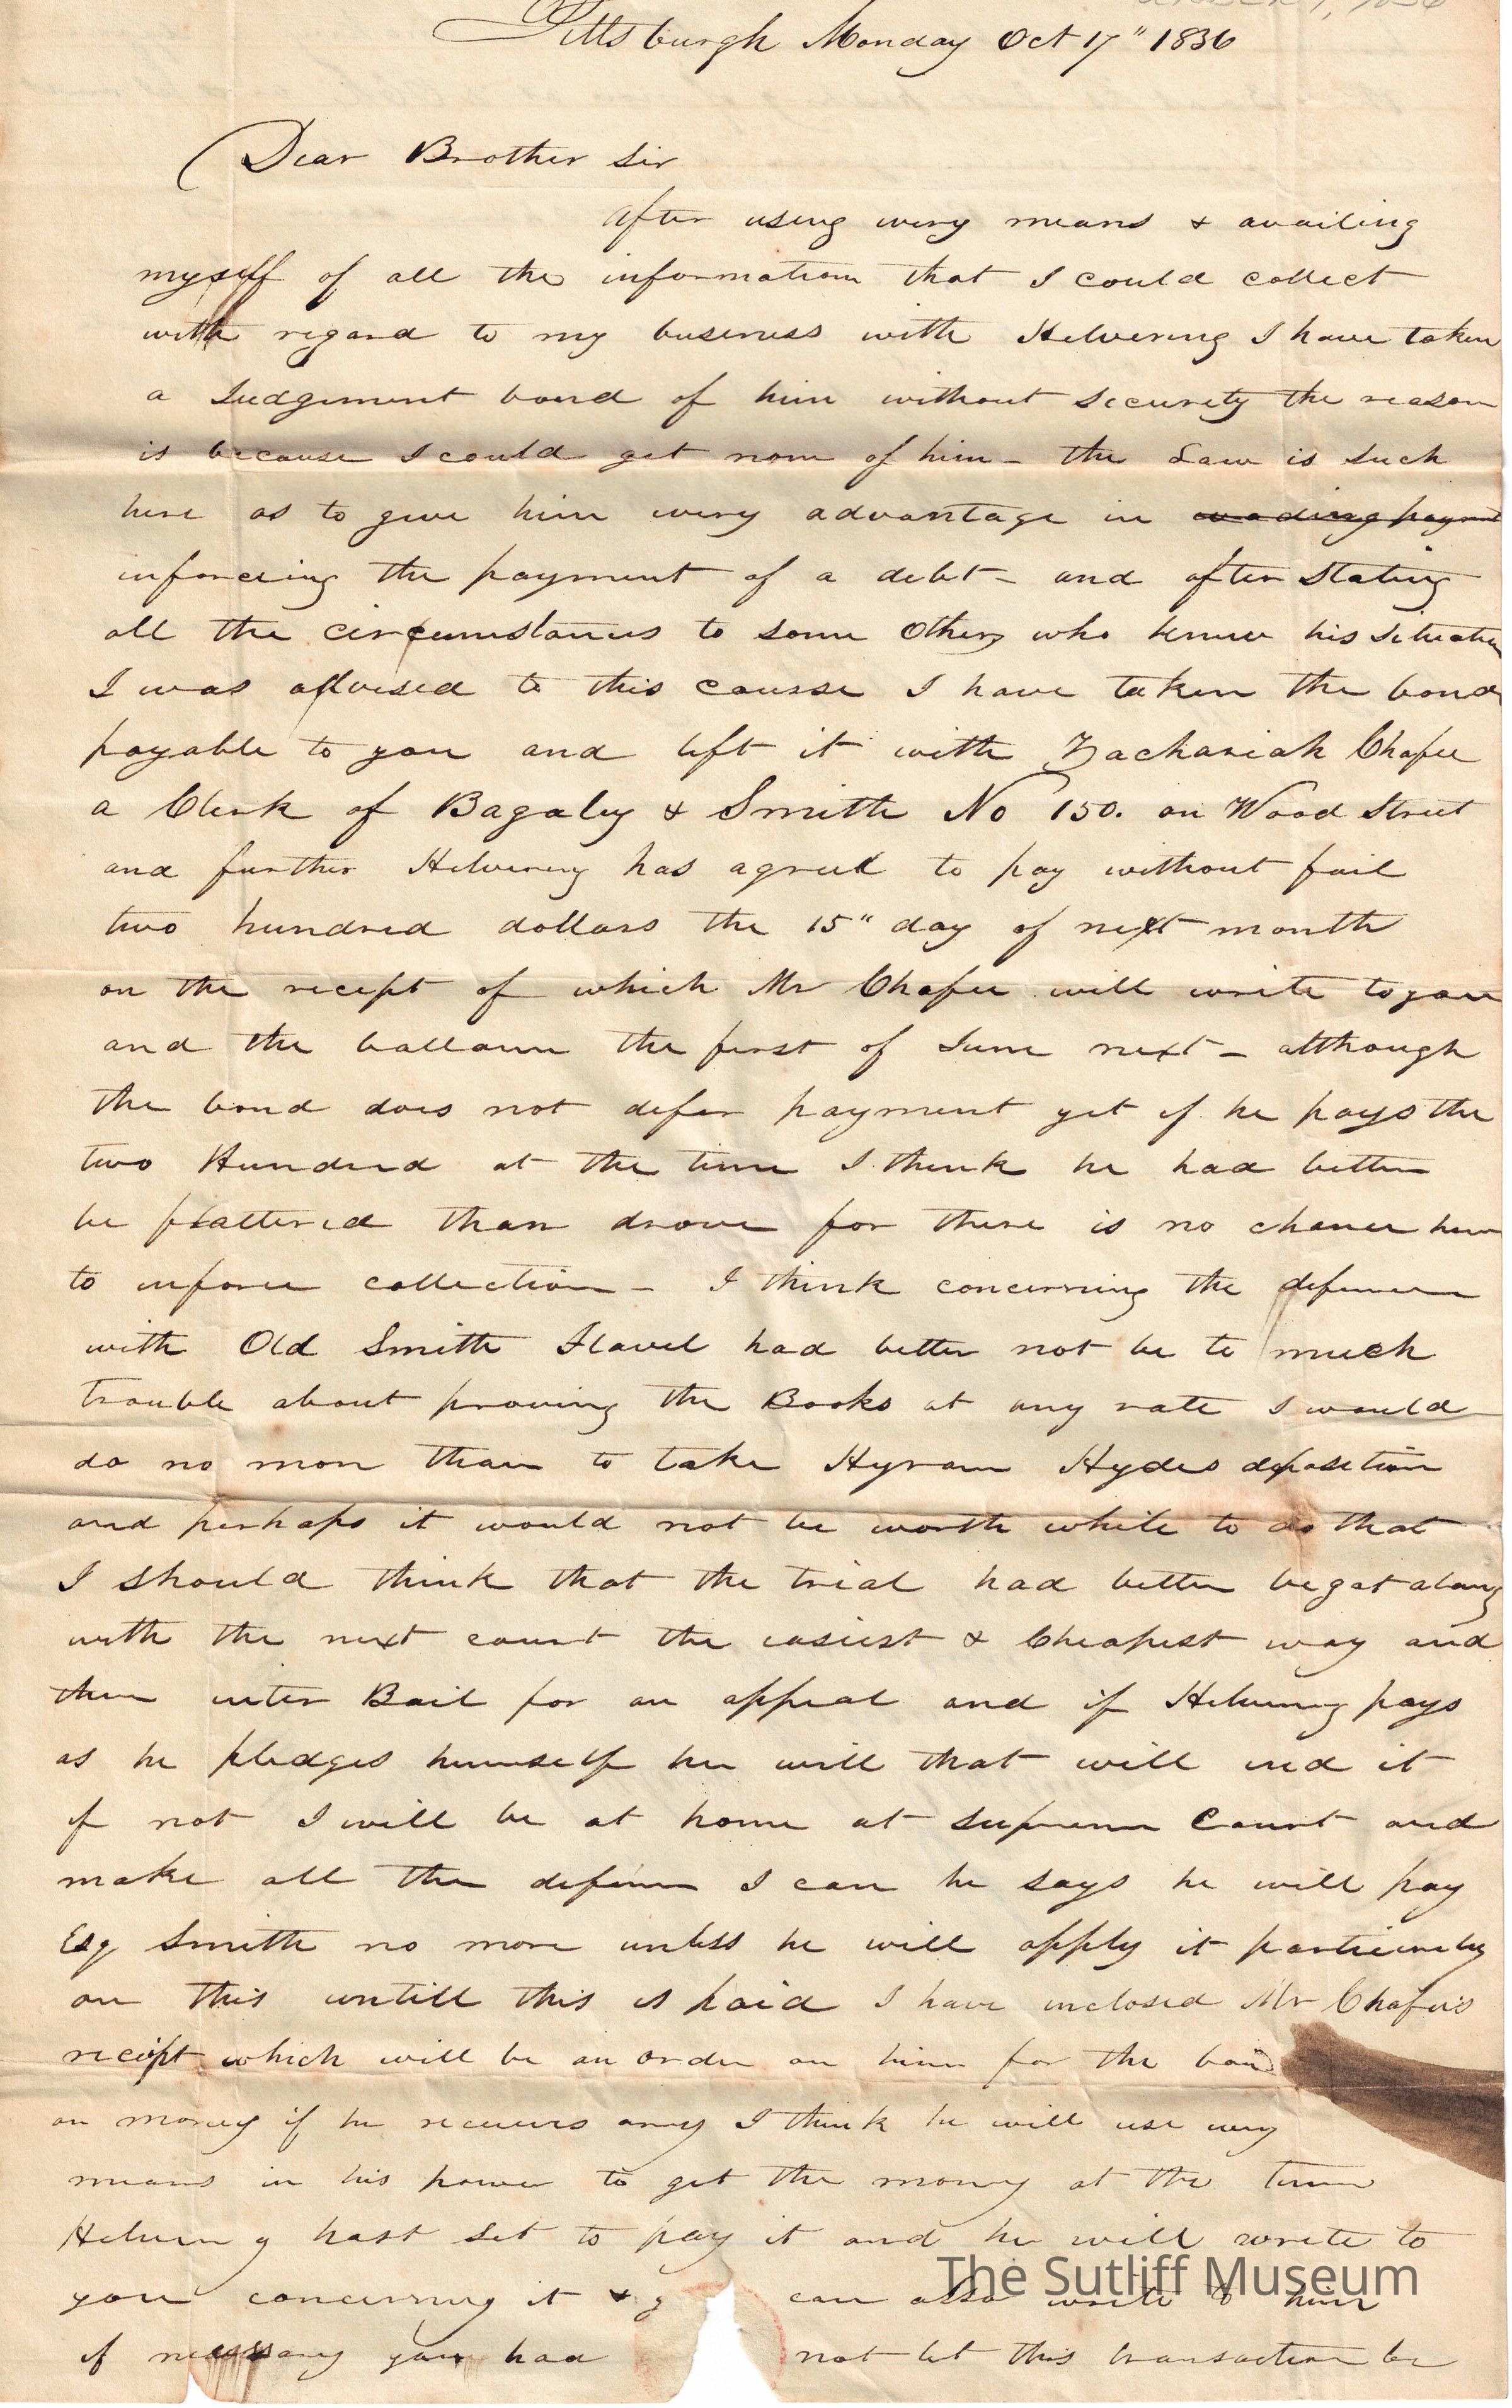 Pittsburgh Monday Oct 17" 1836
Dear Brother Sir
After using every means & availing
myself of all the information that I could collect
with regard to my buseness with Helvering I have taken
a Judgement bond of him without Security the reason
is because I could get none of him - the Law is Such
here as to give him every advantage in evading payment
inforceing the payment of a debt - and after Stating
all the circumstances to some Others who knew his Situation
I was advised to this course I have taken the bond
payable to you and left it with Zachariah Chafee
a Clerk of Bagaley & Smith No 150. on Wood Street
and further Helvering has agreed to pay without fail
two hundred dollars the 15" day of next month
on the recept of which Mr Chafee will write to you
and the ballance the first of June next - although
the bond does not defer payment yet if he pays the
two Hundred at the time I think he had better
be flattered than drove for there is no chance here
to inforce collection - I think concerning the defence
with Old Smith Flavel had better not be to much
trouble about proving the Books at any rate I would
do no more than to take Hyram Hydes deposition
and perhaps it would not be worth while to do that
I should think that the trial had better be got along
with the next court the easiest & Cheapest way and
then enter Bail for an appeal and if Helvering pays
as he pledges himself he will that will end it
if not I will be at home at Supreme Court and
make all the defence I can he says he will pay
Esq Smith no more unless he will apply it particurely
on this untill this is paid I have inclosed Mr Chafee's
recipt which will be an order on him for the bond
or money if he receives any I think he will use every
means in his power to get the money at the time
Helvering hast set to pay it and he will write to
you concerning it & y can also write to him
if necessary you had not let this transaction be
The Sutliff Museum